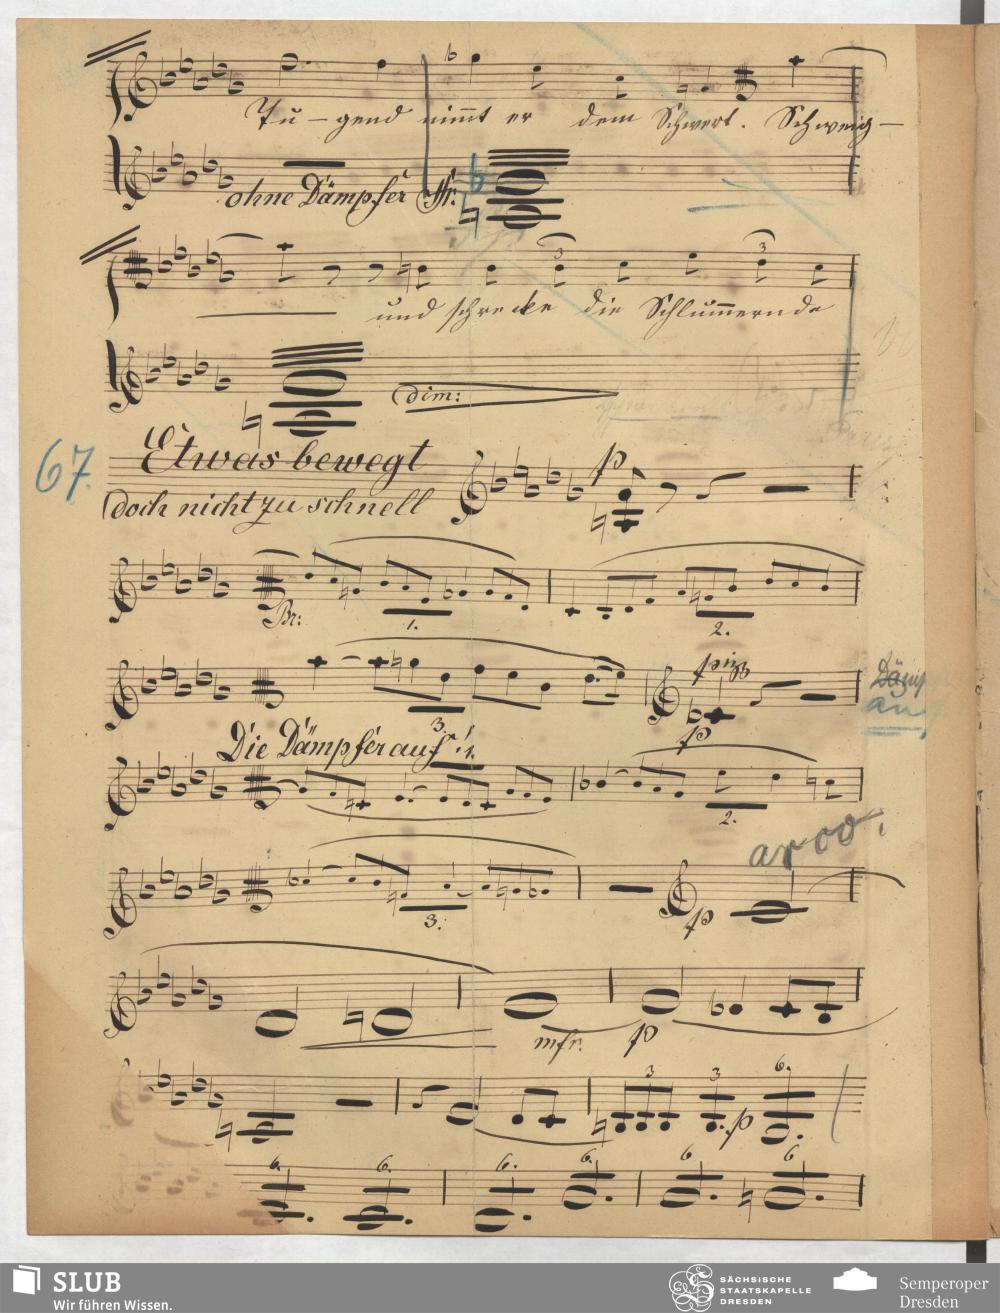 Tu - gend nimmt er dem Schwert. Schweig -
ohne Dämpfer ffr.
und schrecke die Schlummernde
dim:
67. Etwas bewegt
doch nicht zu schnell p
Br: 1. 2.
pizz Dämp
p auf
3
Die Dämpfer auf! 1.
2.
arco.
3. p
mfr. p
3 3 6.
p
6. 6. 6. 6. 6 6
SLUB
Wir führen Wissen.
SÄCHSISCHE
STAATSKAPELLE
DRESDEN
Semperoper
Dresden